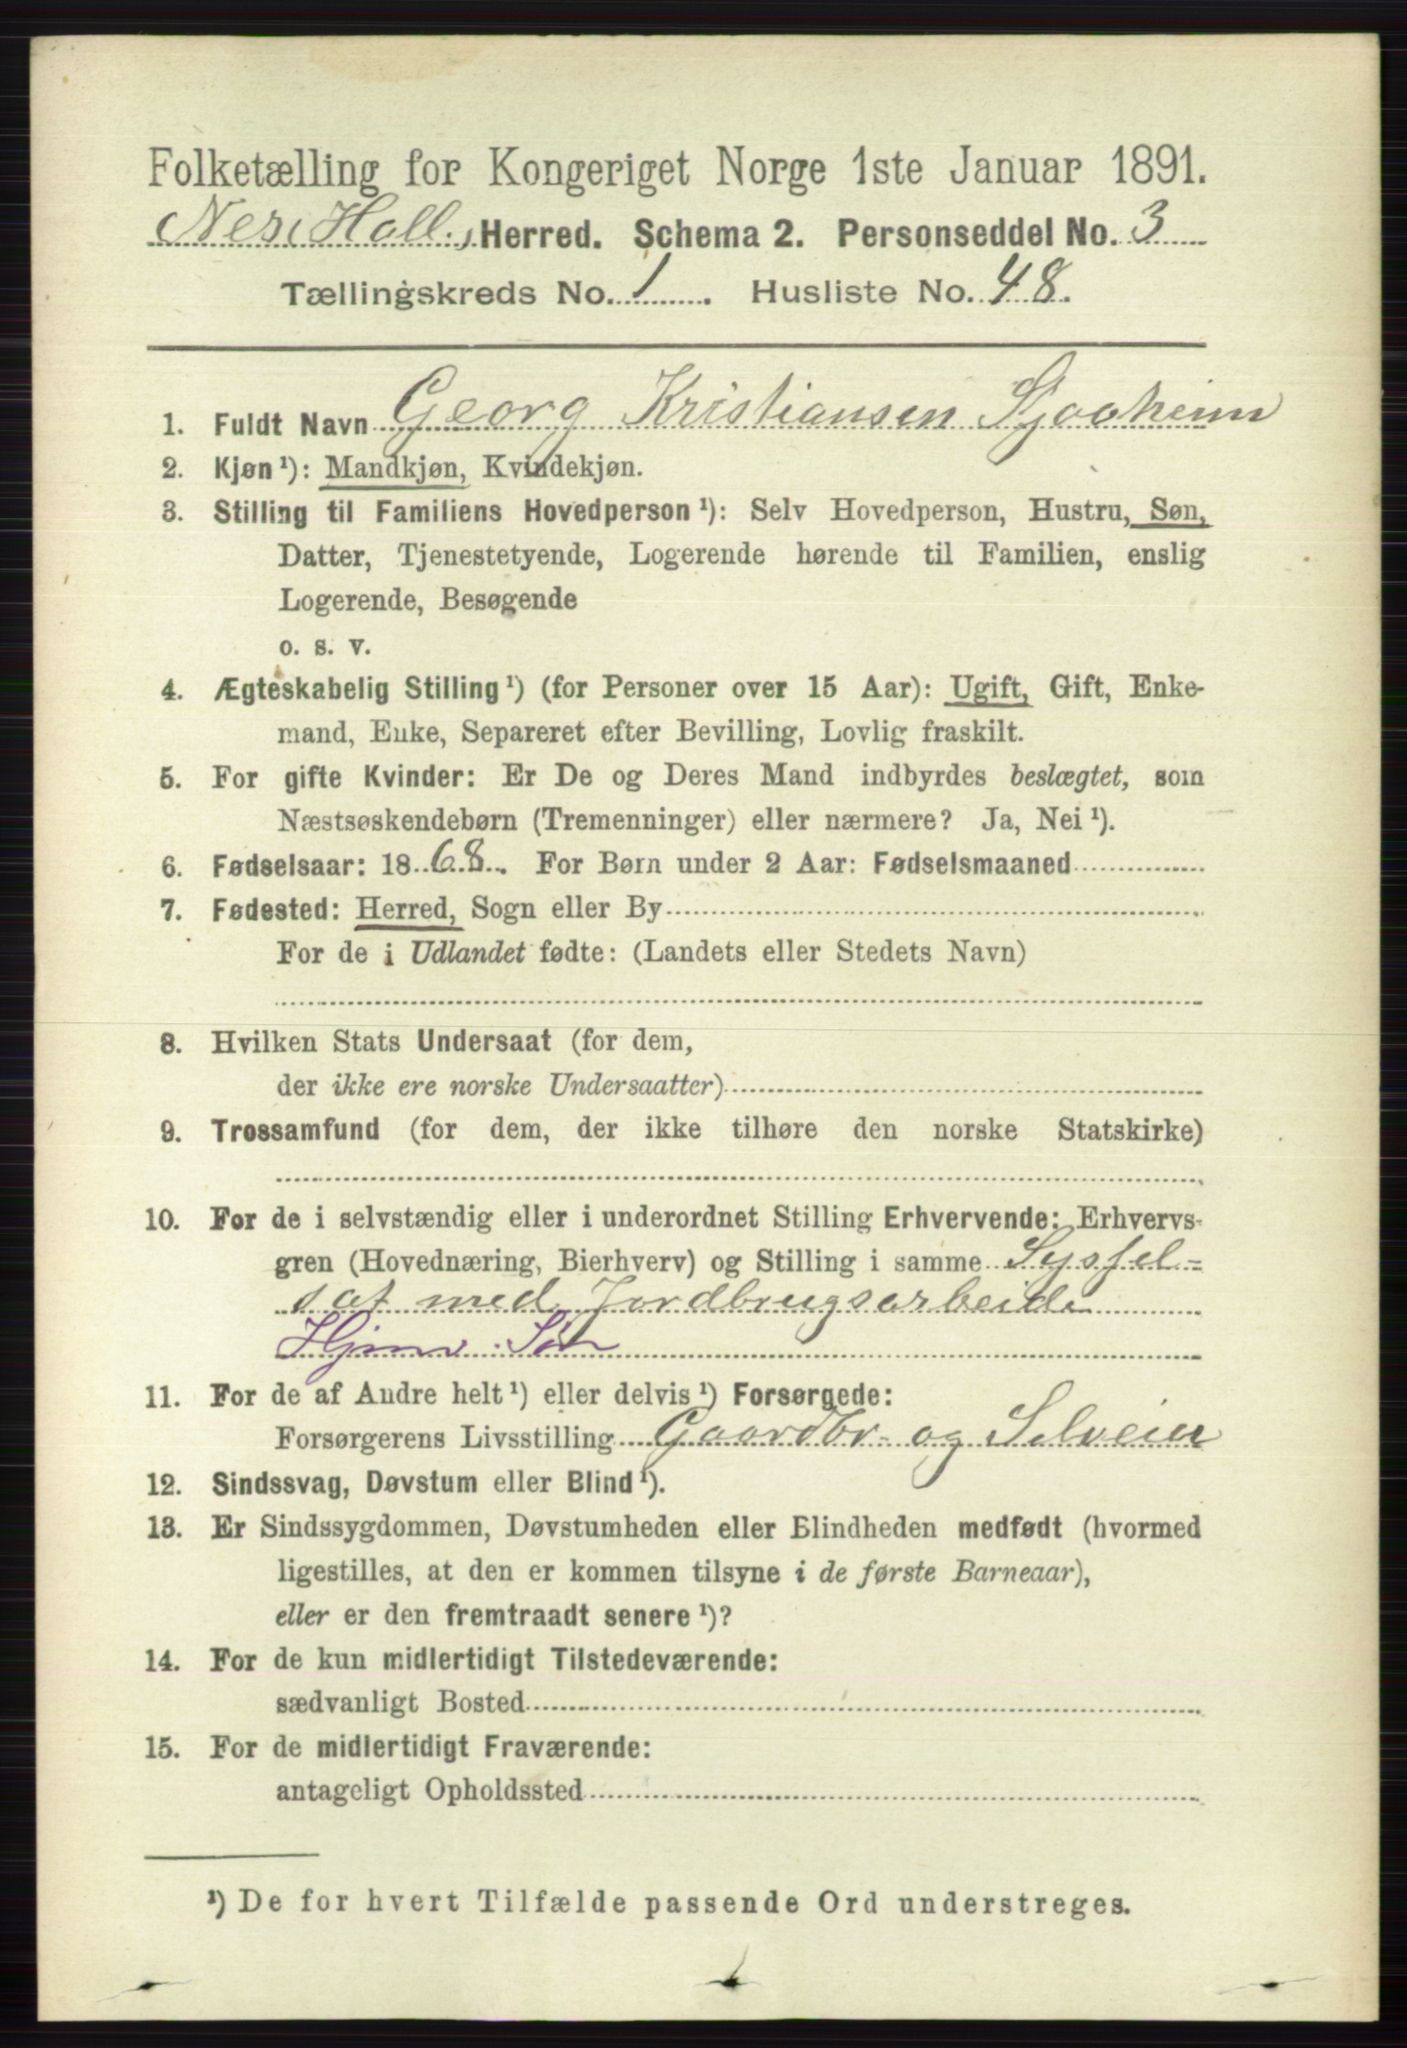 Folketælling for Kongeriget Norge 1ste Januar 1891.
Nes i Hall., Herred. Schema 2. Personseddel No. 3
Tællingskreds No. 1. Husliste No. 48.
1. Fuldt Navn Georg Kristiansen Sjaaheim
2. Kjøn ¹): Mandkjøn, Kvindekjøn.
3. Stilling til Familiens Hovedperson ¹): Selv Hovedperson, Hustru, Søn,
Datter, Tjenestetyende, Logerende hørende til Familien, enslig
Logerende, Besøgende
o. s. v.
4. Ægteskabelig Stilling ¹) (for Personer over 15 Aar): Ugift, Gift, Enke-
mand, Enke, Separeret efter Bevilling, Lovlig fraskilt.
5. For gifte Kvinder: Er De og Deres Mand indbyrdes beslægtet, som
Næstsøskendebørn (Tremenninger) eller nærmere? Ja, Nei ¹).
6. Fødselsaar: 1868. For Børn under 2 Aar: Fødselsmaaned
7. Fødested: Herred, Sogn eller By
For de i Udlandet fødte: (Landets eller Stedets Navn)
8. Hvilken Stats Undersaat (for dem,
der ikke ere norske Undersaatter)
9. Trossamfund (for dem, der ikke tilhøre den norske Statskirke)
10. For de i selvstændig eller i underordnet Stilling Erhvervende: Erhvervs-
gren (Hovednæring, Bierhverv) og Stilling i samme Syssel-
sat med Jordbrugsarbeide
Hjmv. Søn
11. For de af Andre helt ¹) eller delvis ¹) Forsørgede:
Forsørgerens Livsstilling Gaardbr. og Selveier
12. Sindssvag, Døvstum eller Blind ¹).
13. Er Sindssygdommen, Døvstumheden eller Blindheden medfødt (hvormed
ligestilles, at den er kommen tilsyne i de første Barneaar),
eller er den fremtraadt senere ¹)?
14. For de kun midlertidigt Tilstedeværende:
sædvanligt Bosted
15. For de midlertidigt Fraværende:
antageligt Opholdssted
¹) De for hvert Tilfælde passende Ord understreges.